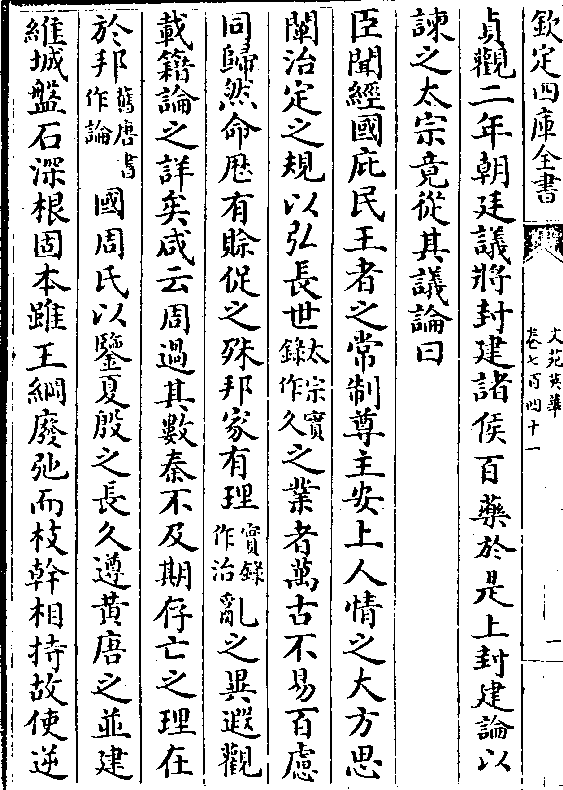 欽定四庫全書
文苑英華
卷七百四十一
一
貞觀二年朝廷議將封建諸侯百藥於是上封建論以
諫之太宗竟從其議論曰
臣聞經國庇民王者之常制尊主安上人情之大方思
闡治定之規以弘長世太宗實錄作久之業者萬古不易百慮
同歸然命厯有賒促之殊邦家有理實錄作治亂之異遐觀
載籍論之詳矣咸云周過其數秦不及期存亡之理在
於邦舊唐書作論國周氏以鑒夏殷之長久遵黃唐之並建
維城盤石深根固本雖王綱廢弛而枝幹相持故使逆